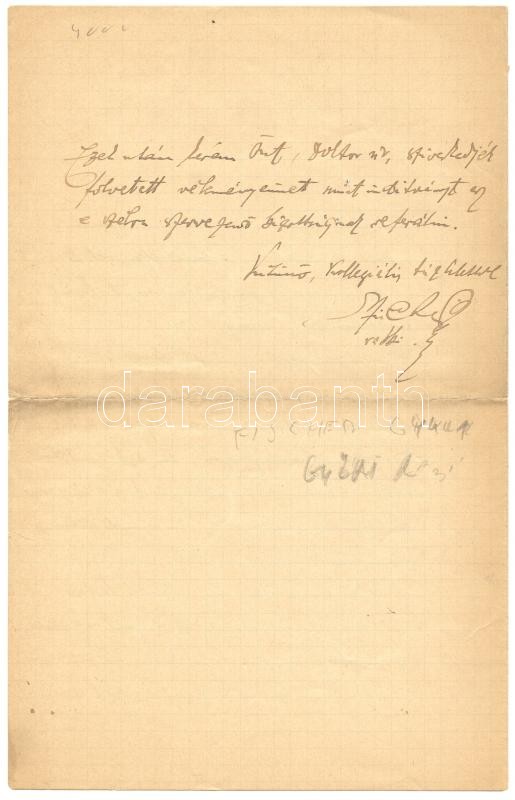 Ezek után kérem Önt, Doktor úr, sziveskedjék
fölvetett véleményeimet mint inditványt az
e célra szervezendő bizottságnak referálni.
Kitünő, kollegiális tisztelettel
Fischer
rabbi.
darabanth
FISCHER GYULA